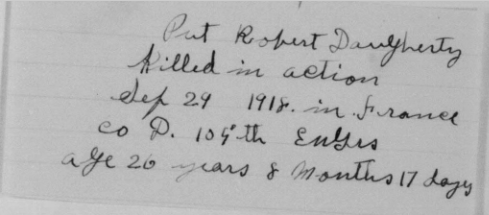 Pvt Robert Daugherty
Killed in action
Sep 29 1918. in. France
co D. 105th Engrs
age 26 years 8 Months 17 days